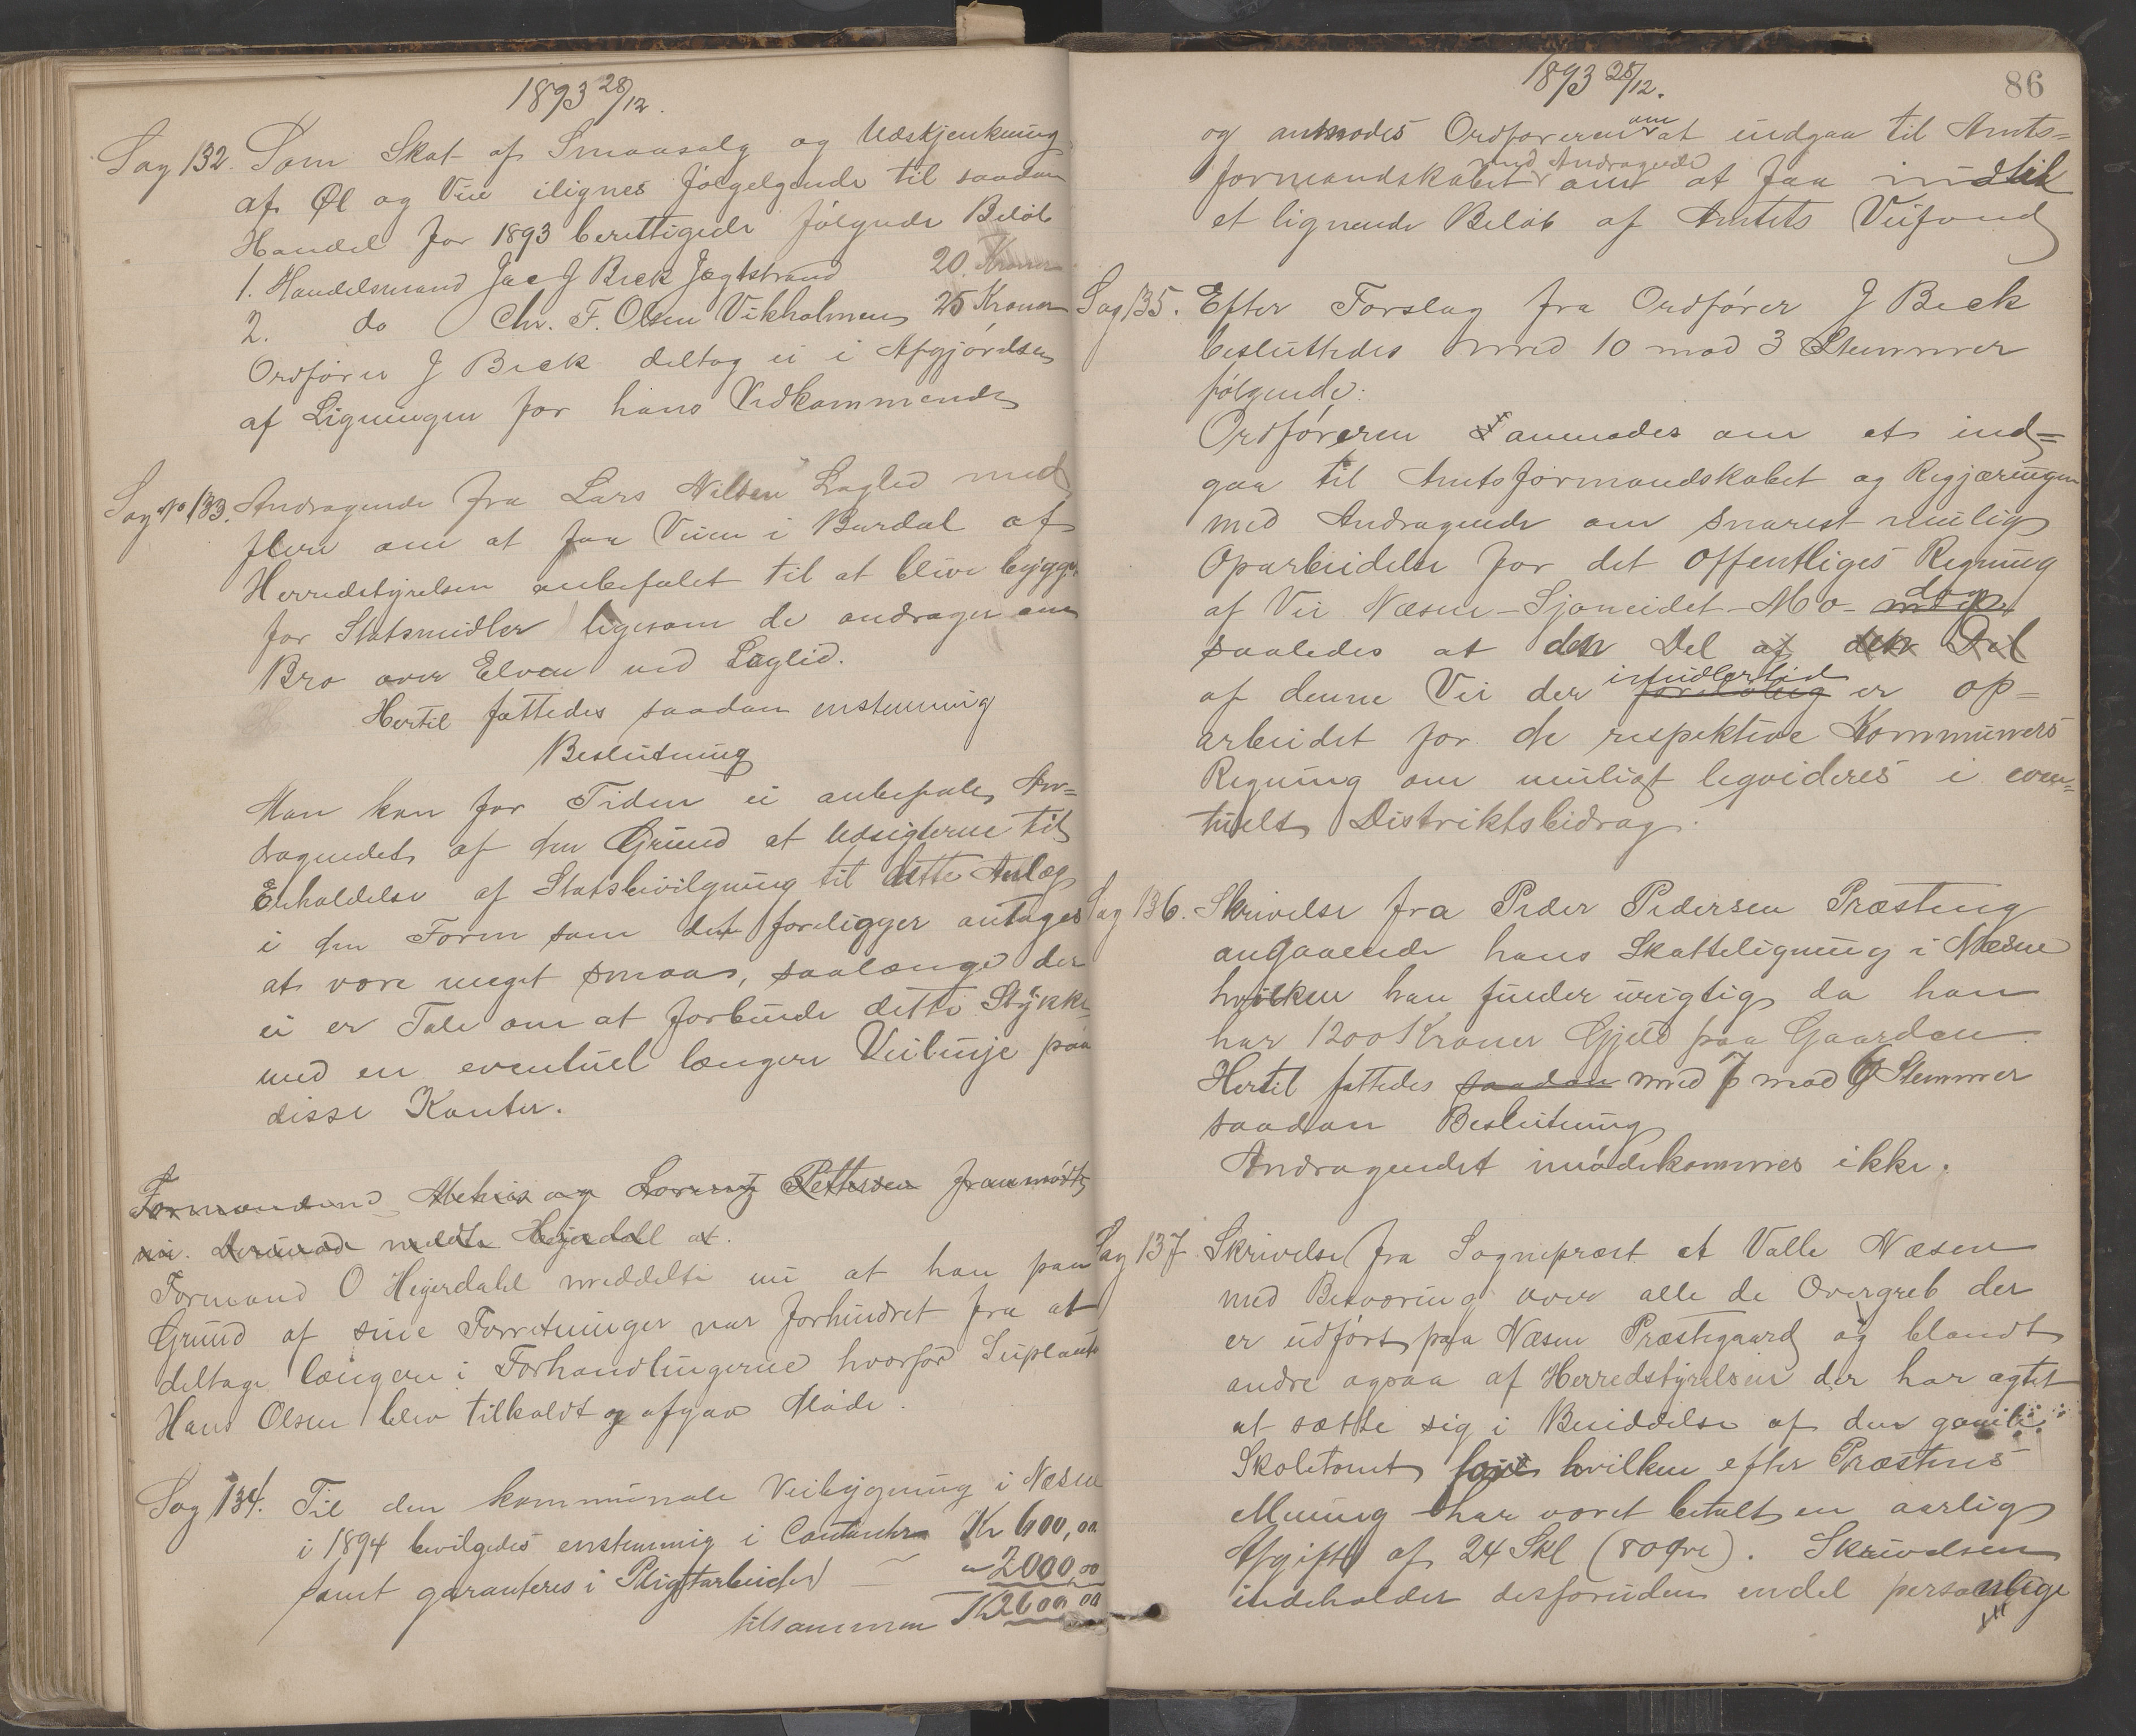 1893 28/12.
Sag 132. Som Skat af Smaasalg og Udskjenkning
af Øl og Vin ilignes følgelgende til saadan
Handel for 1893 berettigede følgende Beløb
1. Handelsmand Jac J Beck Jægtstrand 20 Kroner
2. do Chr. F. Olsen Vikholmen 25 Kroner
Ordfører J Beck deltog ei i Afgjørelsen
af Ligningen for hans Vedkommende
Sag No 133. Andragende fra Lars Nilsen Laglid med
flere om at faa Veien i Burdal af
Herredstyrelsen anbefalet til at blive bygget
for Statsmidler ligesom de andrager om
Bro over Elven ved Laglid.
Hertil fattedes saadan enstemmig
Beslutning
Man kan for Tiden ei anbefale An=
dragendet af den Grund at Udsigterne til
Erholdelse af Statsbevilgning til dette Anlæg
i den Form som det foreligger antages
at være meget smaa, saalænge der
ei er Tale om at forbinde dette Stykke
med en eventuel længere Veilinje paa
disse Kanter.
Formændene og Lorentz Pettersen fremmødte
nu. meldte Hejerdall at.
Formand O Hejerdahl meddelte nu at han paa
Grund af sine Forretninger var forhindret fra at
deltage længere i Forhandlingerne hvorfor Supleant
Hans Olsen blev tilkaldt og afgav Møde.
Sag 134. Til den kommunale Veibygning i Næsne
i 1894 bevilgedes enstemmig i Contanter Kr 600,00
samt garanteres i Pligtarbeider — " 2000,00
tilsammen Kr 2600,00
1893 28/12.
86
og anmodes Ordføreren om at indgaa til Amts=
formandskabet med Andragende om at faa indtil
et lignende Beløb af Amtets Veifond
Sag 135. Efter Forslag fra Ordfører J Beck
besluttedes med 10 mod 3 Stemmer
følgende:
Ordføreren anmodes om at ind=
gaa til Amtsformandskabet og Regjæringen
med Andragende om snarest mulig
Oparbeidelse for det offentliges Regning
af Vei Næsne – Sjoneidet – Mo – dog
saaledes at den Del af den Del
af denne Vei der imidlertid foreløbig er op=
arbeidet for de respektive Kommuners
Regning om muligt liqvideres i even=
tuelt Distriktsbidrag.
Sag 136. Skrivelse fra Peder Pedersen Præsteng
angaaende hans Skatteligning i Næsne
hvilken han finder urigtig da han
har 1200 Kroner Gjeld paa Gaarden.
Hertil fattedes saadan med 7 mod 6 Stemmer
saadan Beslutning
Andragendet imødekommes ikke.
Sag 137. Skrivelse fra Sogneprest at Valle Næsne
med Besværing over alle de Overgreb der
er udført paa Næsne Præstegaard og blandt
andre ogsaa af Herredstyrelsen der har agtet
at sætte sig i Besiddelse af den gamle
Skoletomt for hvilken efter Præstens
Mening har været betalt en aarlig
Afgift af 24 Skl (80 Øre). Skrivelsen
indeholder desforuden endel personlige